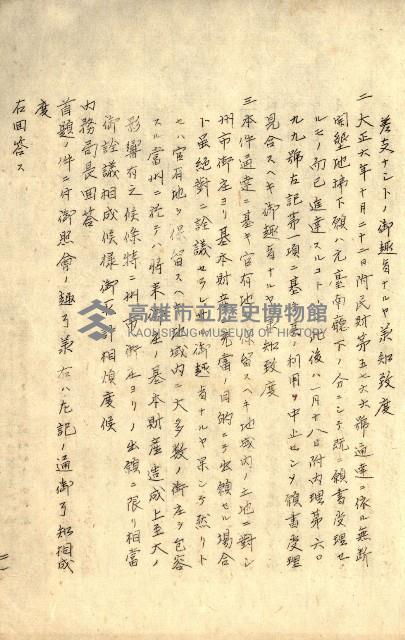 差支ナシトノ御趣旨ナルヤ承知致度
二、大正六年十月二十二日附民財第五七六六號通達ニ依ル無斷
開墾地拂下願ハ元臺南廳下ノ分ニシテ既ニ願書受理セ
ルモノ而已進達スルコトヽシ此後ハ一月十八日附内理第六〇
九九號左記第一項ニ基キ利用ヲ中止セシメ願書受理
見合スヘキ御趣旨ナルヤ承知致度
三、本件通達ニ基キ官有地トシテ保留スヘキ地域内ノ土地ニ對シ
州市街庄ヨリ基本財産ニ充當ノ目的ニテ出願セル場合
ト雖絶對ニ詮議セラレサル御趣旨ナルヤ果シテ然リト
セハ官有地ヲ保留スヘキ地域内ニ大多數ノ街庄ヲ包容
スル當州ニ於テハ將來街庄ノ基本財産造成上至大ノ
影響有之候條特ニ州市街庄ヨリノ出願ニ限リ相當
御詮議相成候樣御配計相煩度候
内務局長回答
首題ノ件ニ付御照會ノ趣了承右ハ左記ノ通御了知相成
度
右回答ス
高雄市立歷史博物館
KAOHSIUNG MUSEUM OF HISTORY